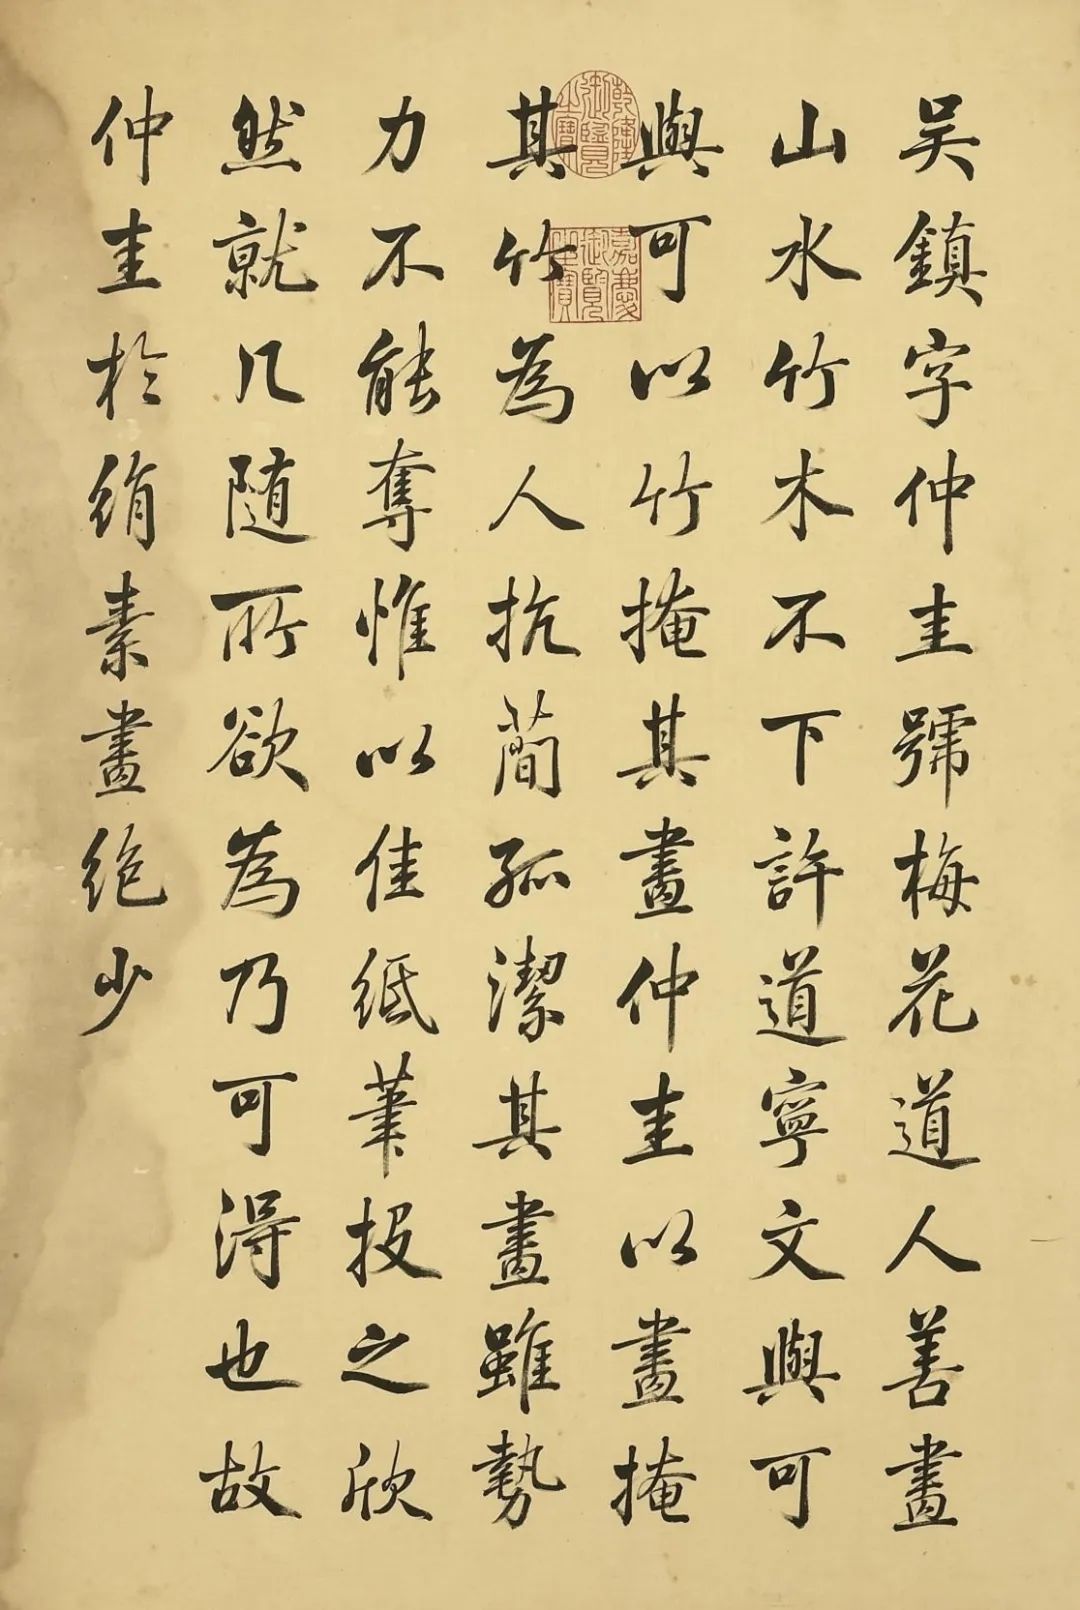 吳鎮字仲圭號梅花道人善畫
山水竹木不下許道寧文與可
與可以竹掩其畫仲圭以畫掩
其竹為人抗簡孤潔其畫雖勢
力不能奪惟以佳紙筆投之欣
然就几随所欲為乃可得也故
仲圭於絹素畫絶少
乾隆御覽之寶
嘉慶御覽之寶